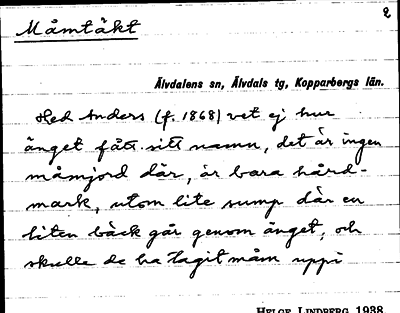 2
Måmtäkt
Älvdalens sn, Älvdals tg, Kopparbergs län.
Hed Anders (f. 1868) vet ej hur
änget fått sitt namn, det är ingen
måmjord där, är bara hård-
mark, utom lite sump där en
liten bäck går genom änget, och
skulle de ha tagit måm uppi
HELGE LINDBERG 1938